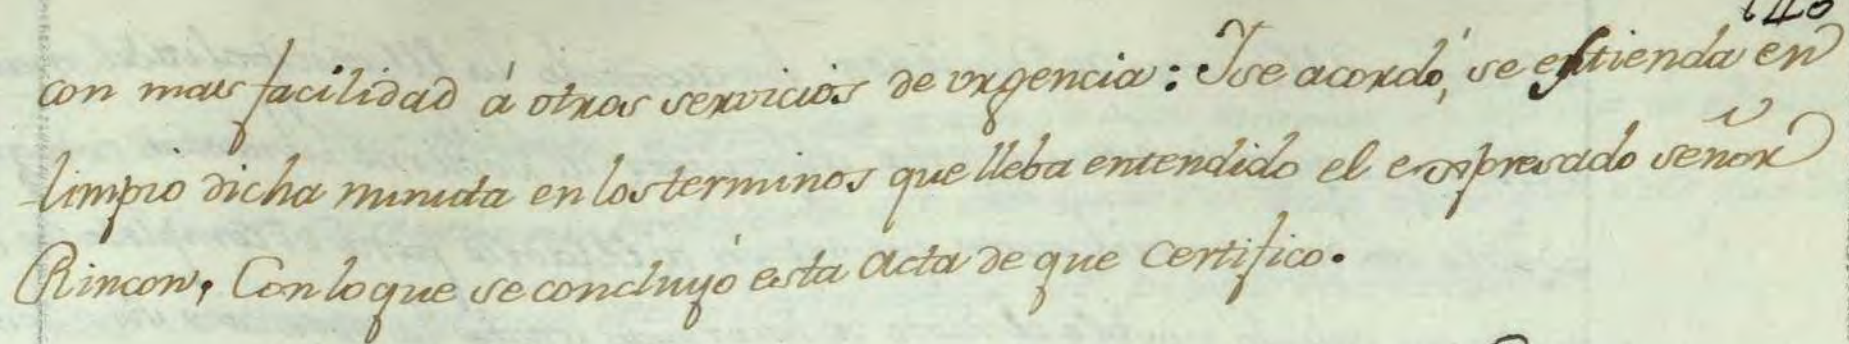 con mas facilidad á otros servicios de urgencia: Y se acordó, se estienda en
limpio dicha minuta en los terminos que lleba entendido el expresado señor
Rincon, Con lo que se concluyó esta acta de que certifico.